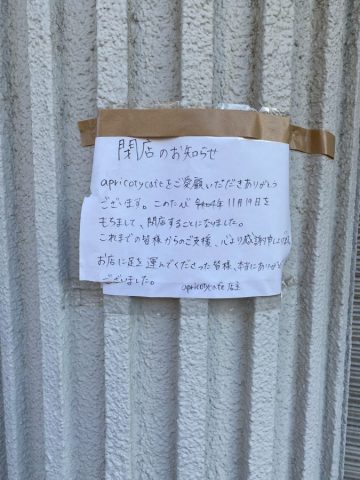 閉店のお知らせ
apricotycafeをご愛顧いただきありがとう
ございます。このたび 令和4年11月19日を
もちまして、閉店することになりました。
これまでの皆様からのご支援、心より感謝申し上げます
お店に足を運んでくださった皆様、本当にありがと
ございました。
apricotycafe 店主